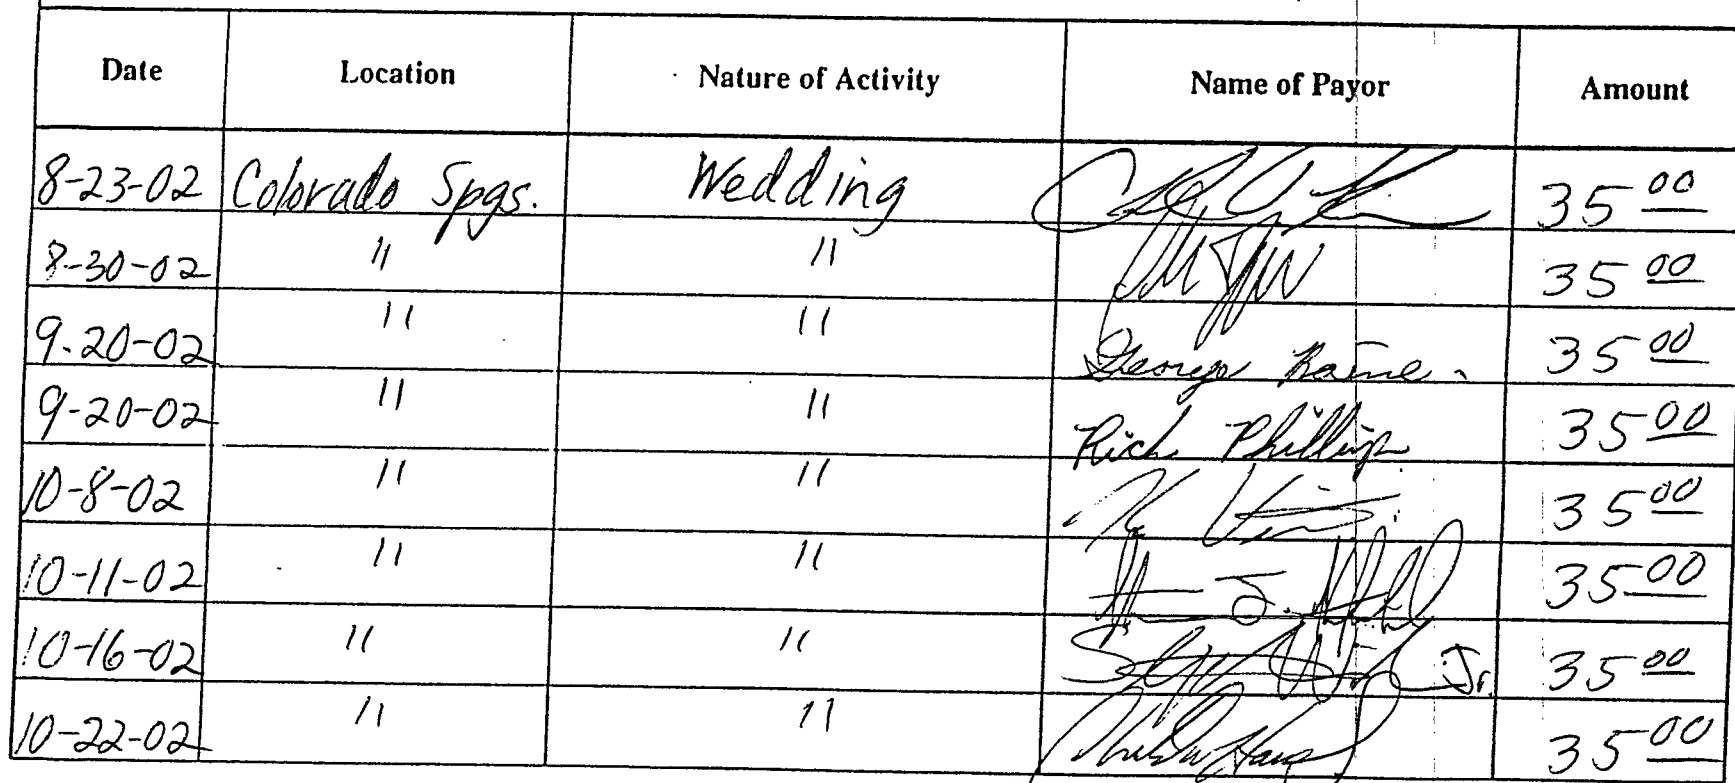 Date Location Nature of Activity Name of Payor Amount
8-23-02 Colorado Spgs. Wedding 35 00
8-30-02 " " 35 00
9-20-02 " " George 35 00
9-20-02 " " Rich Phillips 35 00
10-8-02 " " 35 00
10-11-02 " " J. 35 00
10-16-02 " " Jr. 35 00
10-22-02 " " 35 00